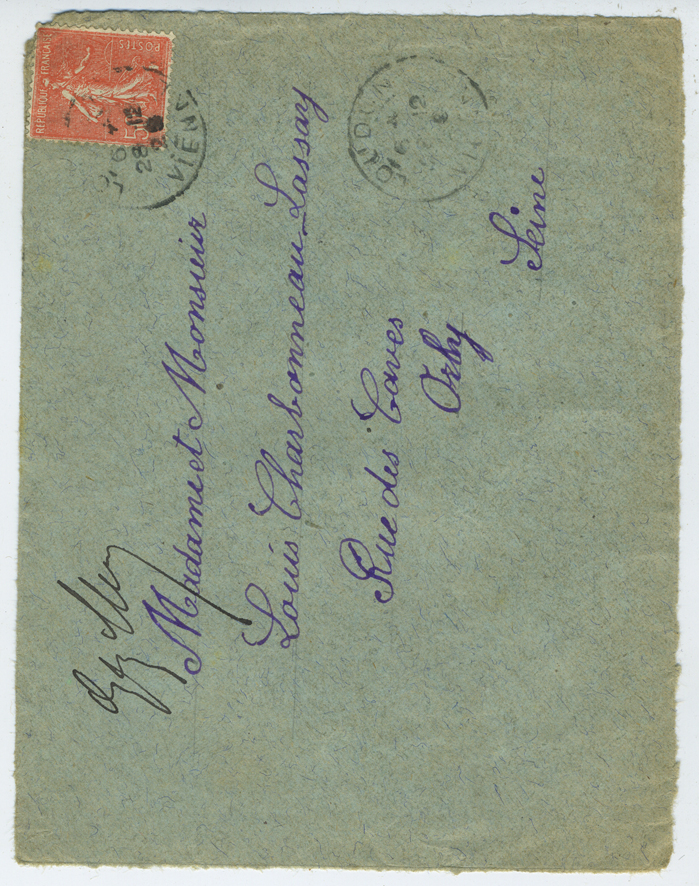 REPUBLIQUE FRANÇAISE
POSTES
LOUDUN
16
28 - 12
VIENNE
LOUDUN
16
12
Madame et Monsieur
Louis Charbonneau-Lassay
Rue des Caves
Orly
Seine